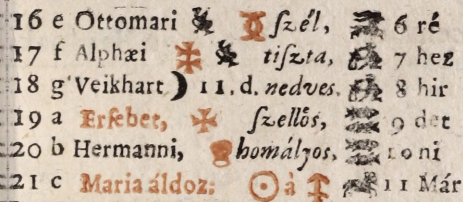 16 e Ottomari ſzél, 6 ré
17 f Alphæi tiſzta, 7 hez
18 g Veikhart ☽ 11. d. nedves, 8 hir
19 a Erſebet, ſzellős, 9 det
20 b Hermanni, homályos, 10 ni
21 c Maria áldoz: ☉ à ♐ 11 Már